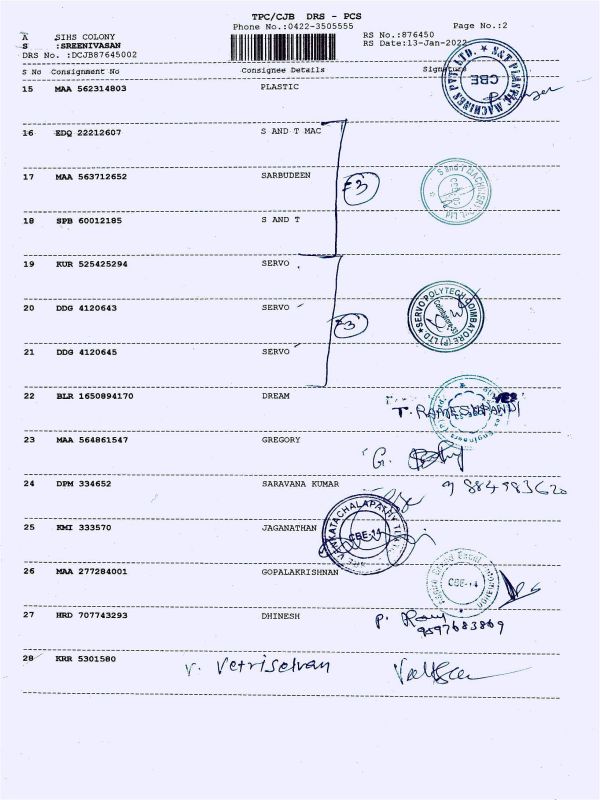 TPC/CJB DRS - PCS
Phone No.:0422-3505555
Page No.:2
A SIHS COLONY
S :SREENIVASAN
DRS No. :DCJB87645002
RS No.:876450
RS Date:13-Jan-2022
S No Consignment No Consignee Details Signature
15 MAA 562314803 PLASTIC
S&T PLASTIC MACHINES PVT. LTD. CBE
16 EDQ 22212607 S AND T MAC
17 MAA 563712652 SARBUDEEN
18 SPB 60012185 S AND T
19 KUR 525425294 SERVO
20 DDG 4120643 SERVO
SERVO POLYTECH COIMBATORE (P) LTD
21 DDG 4120645 SERVO
22 BLR 1650894170 DREAM
T. RAMESHPANDI
23 MAA 564861547 GREGORY
G.
24 DPM 334652 SARAVANA KUMAR
25 KMI 333570 JAGANATHAN
CBE-14
26 MAA 277284001 GOPALAKRISHNAN
CBE-14
27 HRD 707743293 DHINESH
P.
9597683869
28 KRR 5301580 V. Vetriselvan